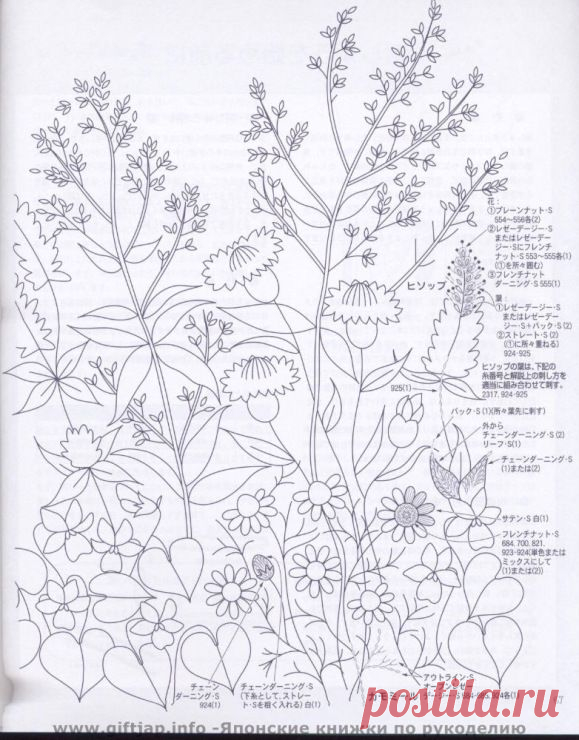 花:
①プレーンナット・S
554〜556各(2)
②レゼーデージー・S
またはレゼーデー
ジー・Sにフレンチ
ナット・S 553〜555各(1)
(①を所々囲む)
③フレンチナット
ダーニング・S 555(1)
葉:
①レゼーデージー・S
またはレゼーデー
ジー・S+バック・S(2)
②ストレート・S(2)
(①に所々重ねる)
924・925
ヒソップ
ヒソップの葉は、下記の
糸番号と解説上の刺し方を
適当に組み合わせて刺す。
2317. 924・925
925(1)
バック・S(1)(所々葉先に刺す)
外から
チェーンダーニング・S(2)
リーフ・S(1)
チェーンダーニング・S
(1)または(2)
サテン・S 白(1)
フレンチナット・S
684. 700. 821.
923・924(単色または
ミックスにして
(1)または(2))
チェーン
ダーニング・S
924(1)
チェーンダーニング・S
(下糸として、ストレー
ト・Sを粗く入れる) 白(1)
アウトライン・S
カモミール
924各(1)
postila.ru
www.giftjap.info -Японские книжки по рукоделию